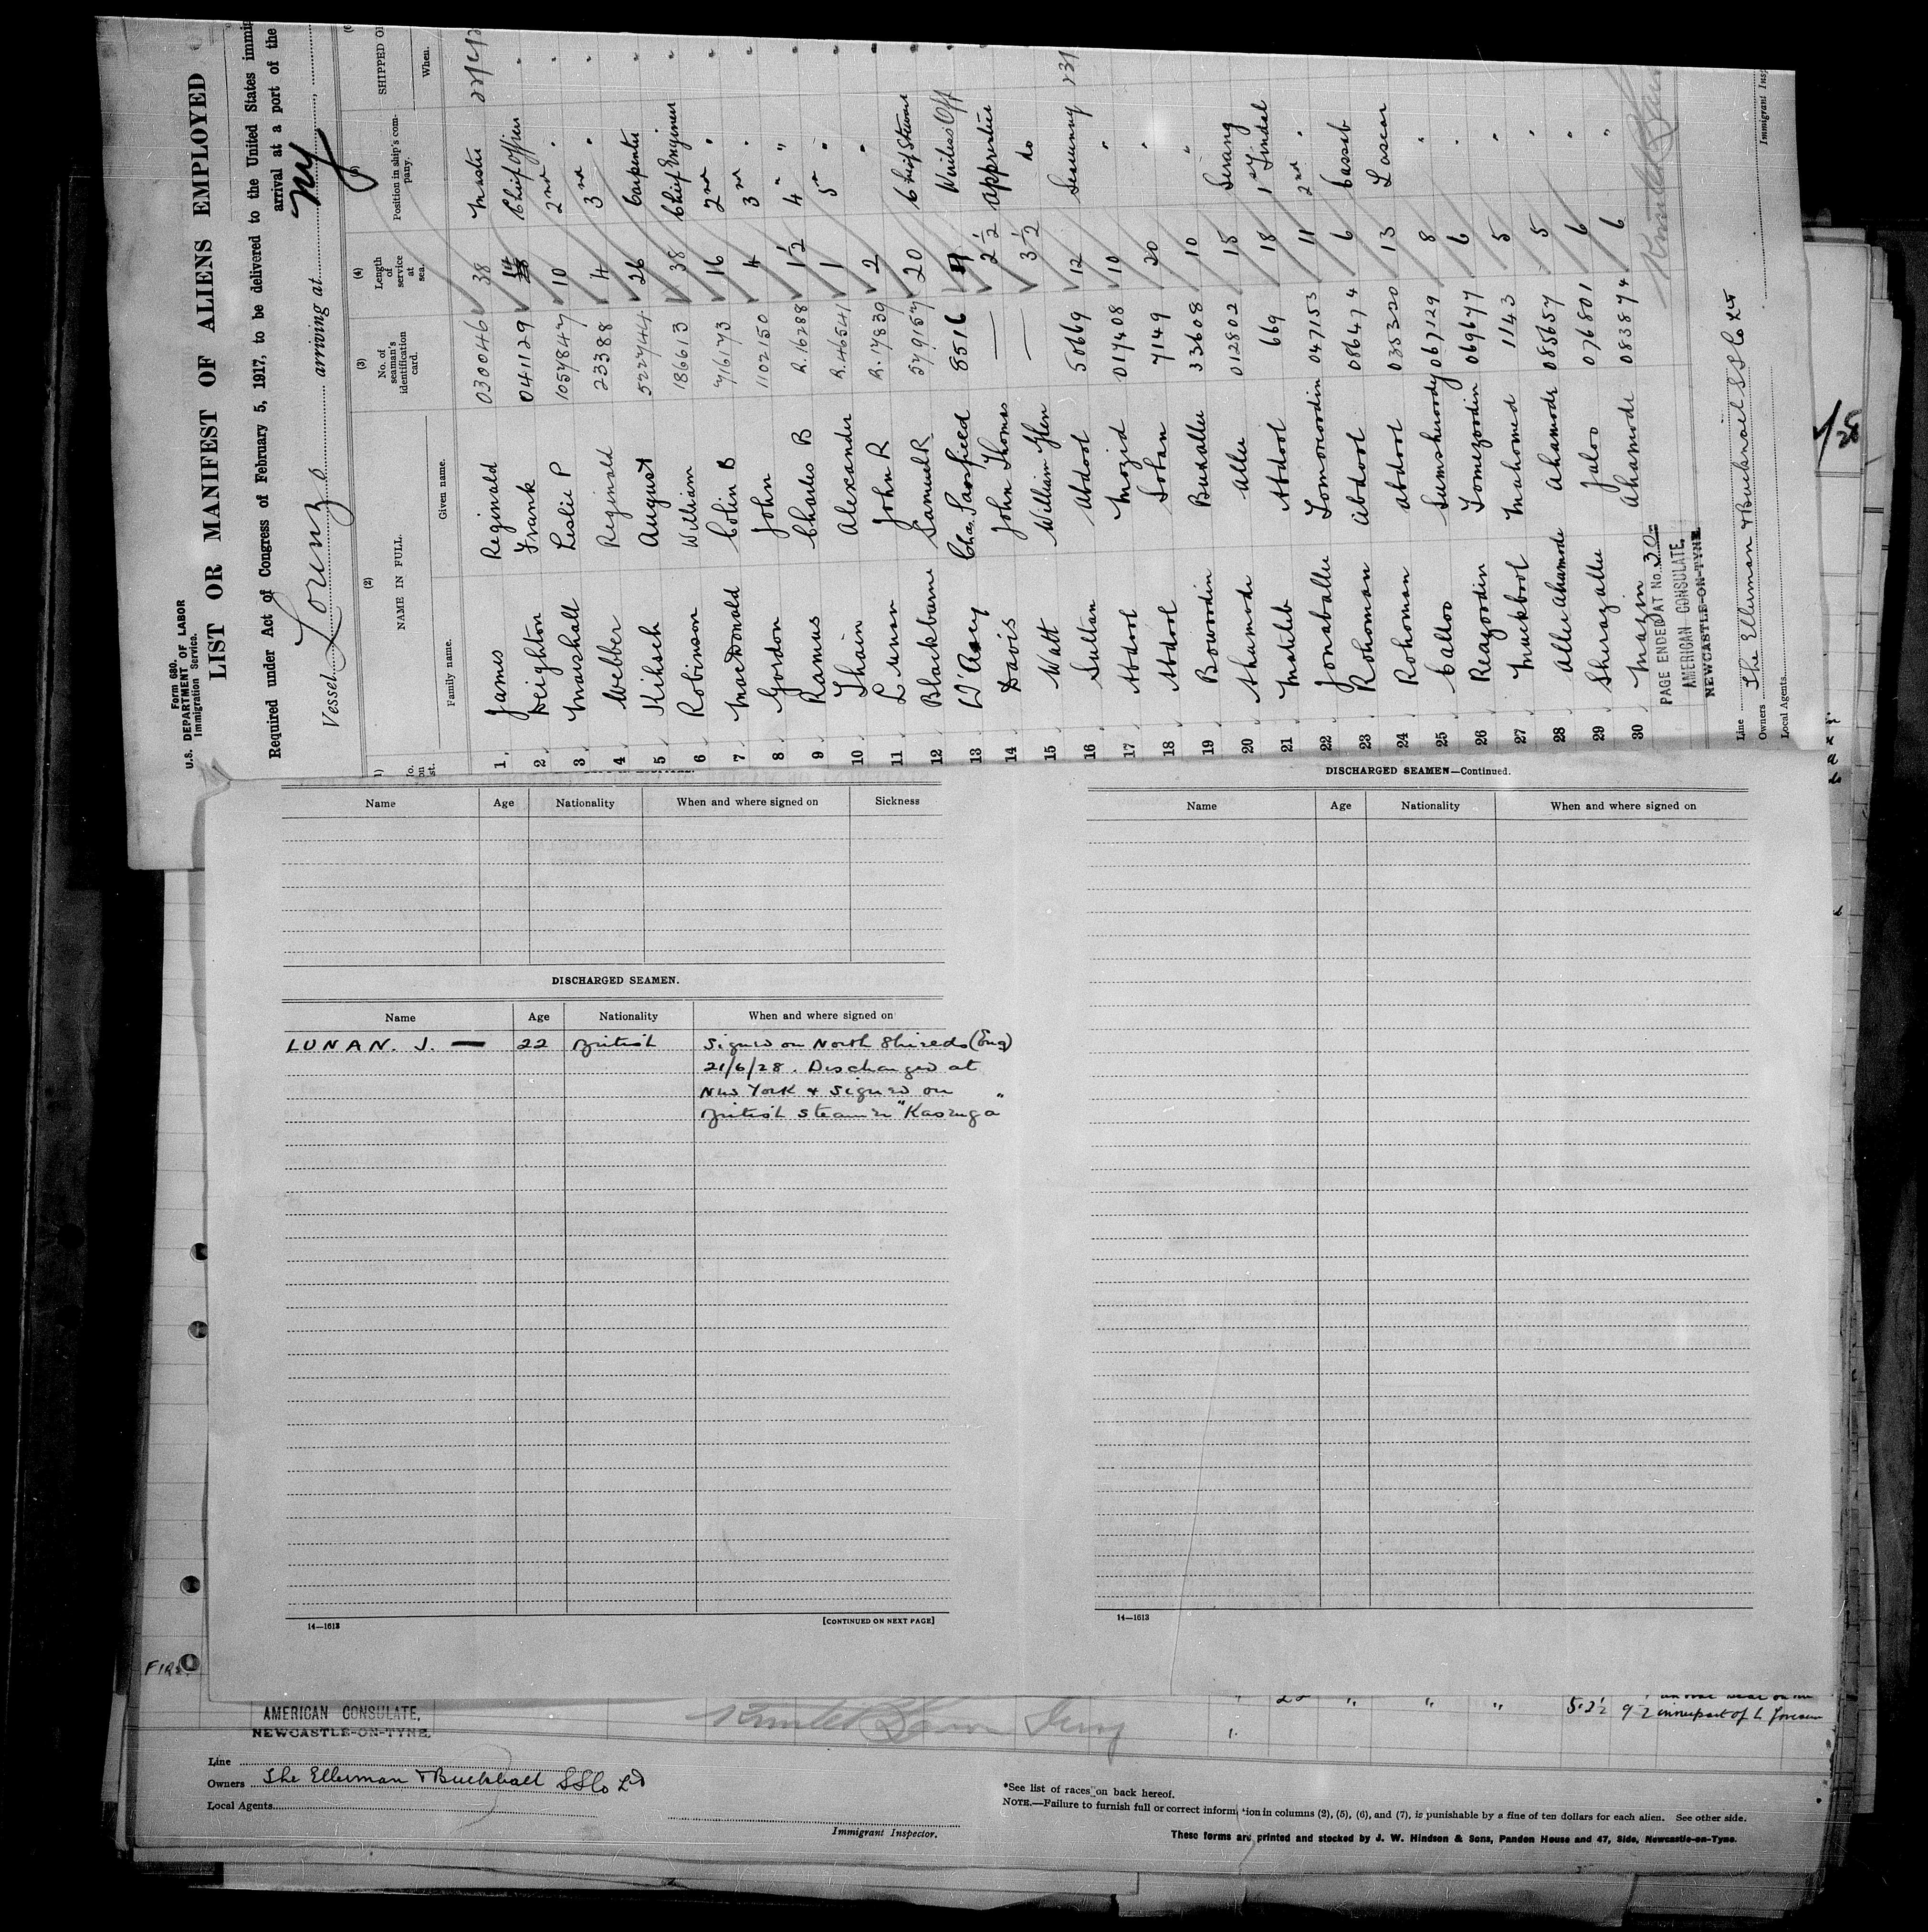 Form 680.
U.S. DEPARTMENT OF LABOR
Immigration Service.
LIST OR MANIFEST OF ALIENS EMPLOYED
Required under Act of Congress of February 5, 1917, to be delivered to the United States immig
arrival at a port of the
Vessel Lorenzo arriving at NY
(2) (3) (4)
NAME IN FULL. No. of seaman's identification card. Length of service at sea. Position in ship's company. SHIPPED OR
Family name. Given name. When.
1 James Reginald 030046 38 Master
2 Deighton Frank 041129 14 Chief Officer "
3 Marshall Leslie P 1057847 10 2nd " "
4 Webber Reginald 23388 4 3rd " "
5 Kihsch August 522744 26 Carpenter "
6 Robinson William 186613 38 Chief Engineer "
7 MacDonald Colin B 716173 16 2nd " "
8 Gordon John 1102150 4 3rd " "
9 Ramus Charles B R.16288 1½ 4" " "
10 Thain Alexander R.46541 1 5" " "
11 Lunan John R R.17839 2 " "
12 Blackburne Samuel R 579157 20 Chief Steward "
13 D'Arcy Chas. Parsfield 8516 Wireless Off "
14 Davis John Thomas — 2½ apprentice "
15 Watt William Glen — 3½ do "
16 Sultan Abdool 50669 12 Seacunny 23/
17 Abdool Mozid 017408 10 "
18 Abdool Soban 7149 20 "
19 Bowoodin Buxallee 33608 10 "
20 Ahamode Allee 012802 15 Serang
21 Matlib Abdool 669 18 1st Tindal
22 Jonaballee Tomorcoodin 047153 11 2nd "
23 Rohoman Abdool 086474 6 Cassab
24 Rohoman Abdool 035320 13 Lascar
25 Calloo Sumsheroody 067129 8 "
26 Reazoodin Tomezoodin 069677 6 "
27 Muckbool Mahomed 1143 5 "
28 Allee Ahamode Ahamode 085657 5 "
29 Sherazallee Jaloo 076801 6 "
30 Mazim Ahamode 083874 6 "
PAGE ENDED AT No. 30
AMERICAN CONSULATE,
NEWCASTLE-ON-TYNE
Line
Owners The Ellerman & Bucknall SS Co Ltd
Local Agents
Immigrant Insp
Name Age Nationality When and where signed on Sickness
DISCHARGED SEAMEN.
Name Age Nationality When and where signed on
LUNAN. J. — 22 British Signed on North Shields (Eng)
21/6/28. Discharged at
New York & signed on
British steamer "Kasenga"
14—1613 [CONTINUED ON NEXT PAGE]
DISCHARGED SEAMEN—Continued.
Name Age Nationality When and where signed on
14—1613
AMERICAN CONSULATE,
NEWCASTLE-ON-TYNE.
Line
Owners The Ellerman & Bucknall SS Co Ltd
Local Agents
Immigrant Inspector.
*See list of races on back hereof.
NOTE.—Failure to furnish full or correct information in columns (2), (5), (6), and (7), is punishable by a fine of ten dollars for each alien. See other side.
These forms are printed and stocked by J. W. Hindson & Sons, Pandon House and 47, Side, Newcastle-on-Tyne.